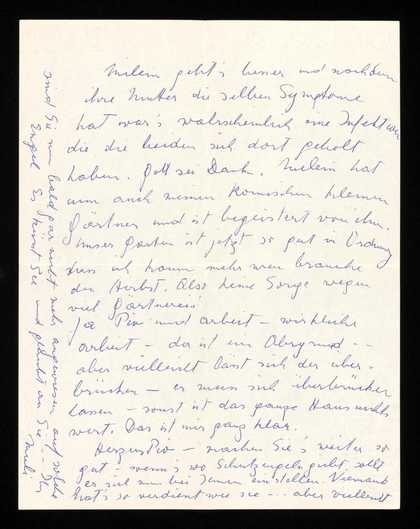 Milein geht's besser und nachdem
ihre Mutter die selben Symptome
hat war's wahrscheinlich eine Infektion
die die beiden sich dort geholt
haben. Gott sei Dank. Milein hat
nun auch meinen komischen kleinen
Gärtner und ist begeistert von ihm.
Unser Garten ist jetzt so gut in Ordnung
dass ich kaum mehr wen brauche
den Herbst. Also keine Sorge wegen
viel Gärtnerei
Ja Piv und arbeit - wirkliche
arbeit - der ist ein Abgrund --
aber vielleicht lässt sich der über-
brücken - er muss sich überbrücken
lassen - sonst ist das ganze Haus nichts
wert. Das ist mir ganz klar.
Herzens Piv - machen Sie's weiter so
gut - wenn's wo Schutzengeln gibt, sollt
er sich nun bei Ihnen einstellen. Niemand
hat's so verdient wie sie - aber vielleicht
sind Sie nun bald gar nicht mehr angewiesen auf solche
Engel. Es küsst Sie und glaubt an Sie - Ihr
Muli